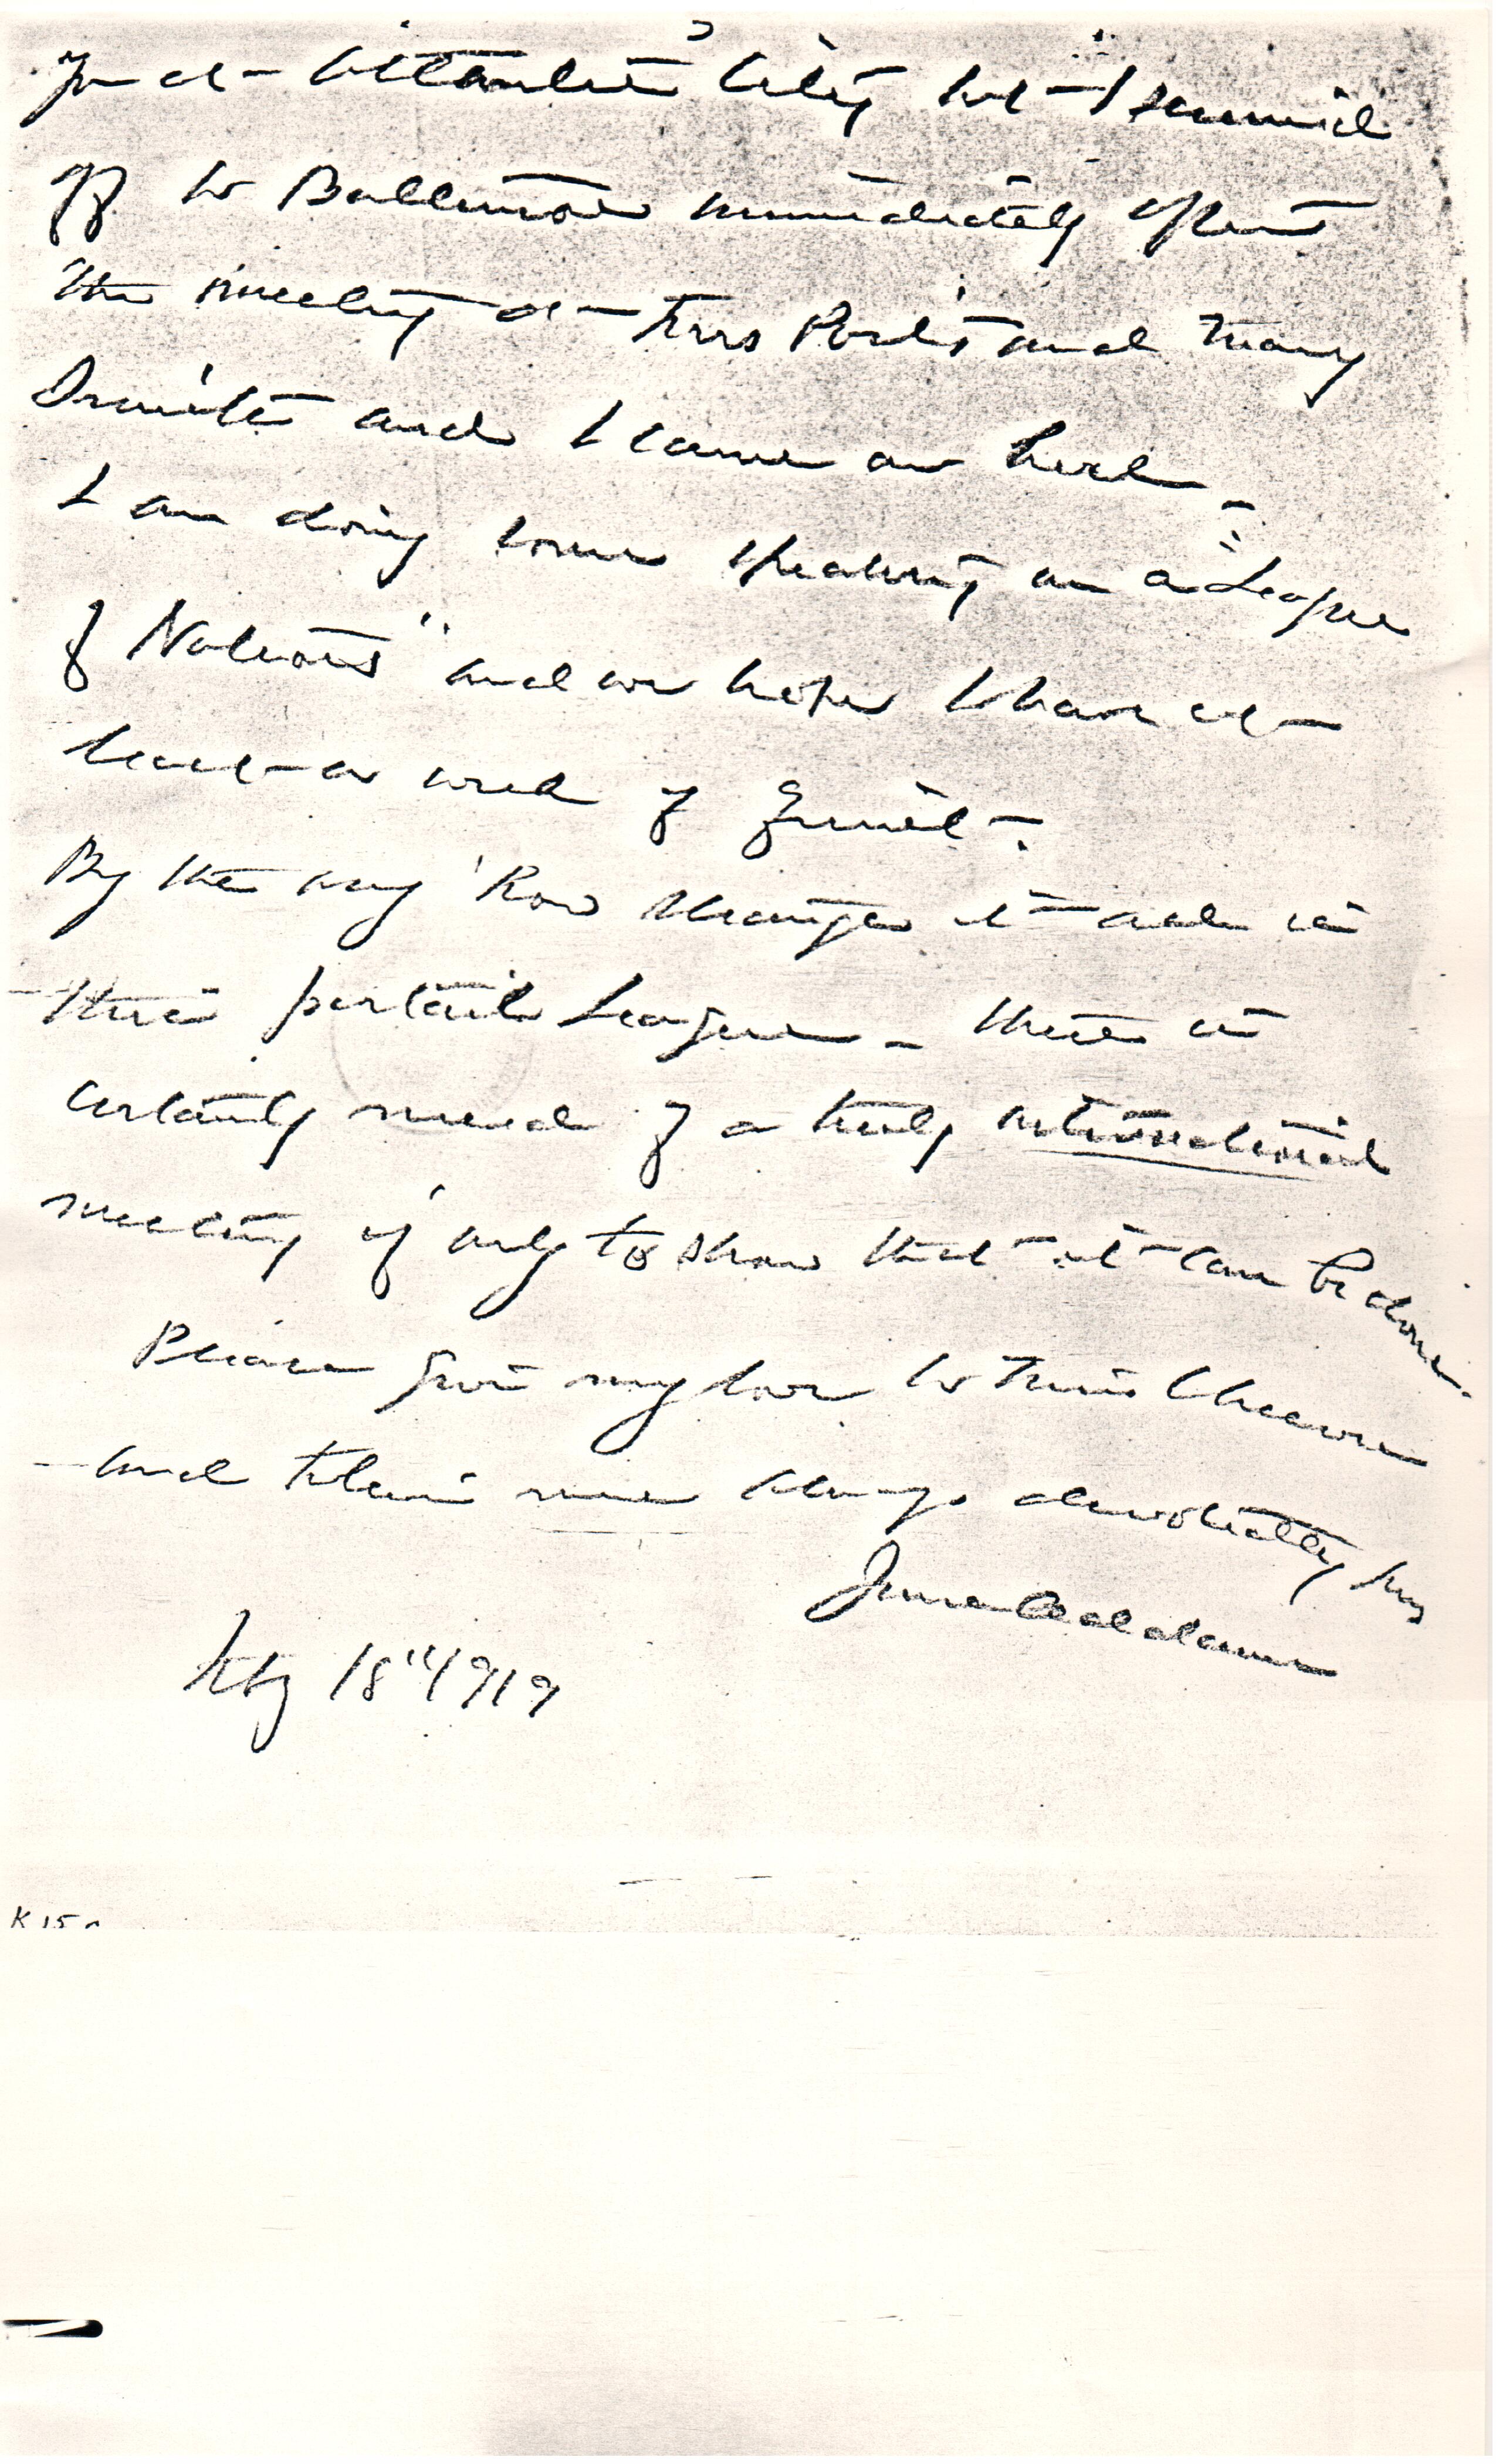 you at Atlantic City but I hurried
off to Baltimore immediately after
the meeting at Mrs Ford's and Mary
Smith and I came on here –
I am doing some speaking on a "League
of Nations" and we hope I have at
least a week of
By the way how strange it all is
this partial League – there is
certainly need of a truly international
meeting if only to show that it can be done.
Please give my love to Miss
and believe me always devotedly yrs
Jane Addams
Feby 18" 1919
K 15